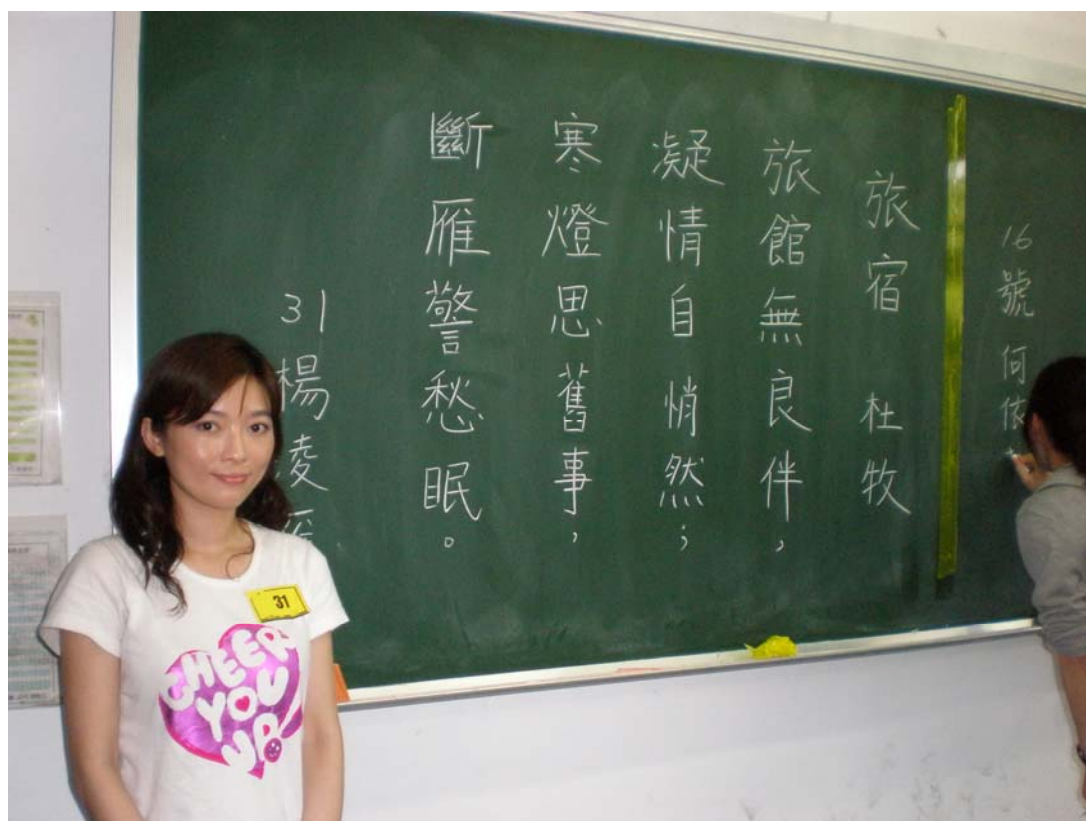 16號何依
旅宿 杜牧
旅館無良伴，
凝情自悄然；
寒燈思舊事，
斷雁警愁眠。
31楊凌
31
CHEER
YOU
UP!